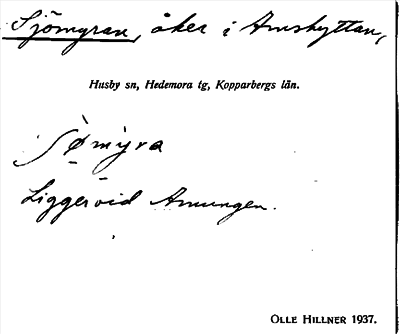 Sjömyran, åker i Amshyttan,
Husby sn, Hedemora tg, Kopparbergs län.
Liggervid Amungen.
OLLE HILLNER 1937.